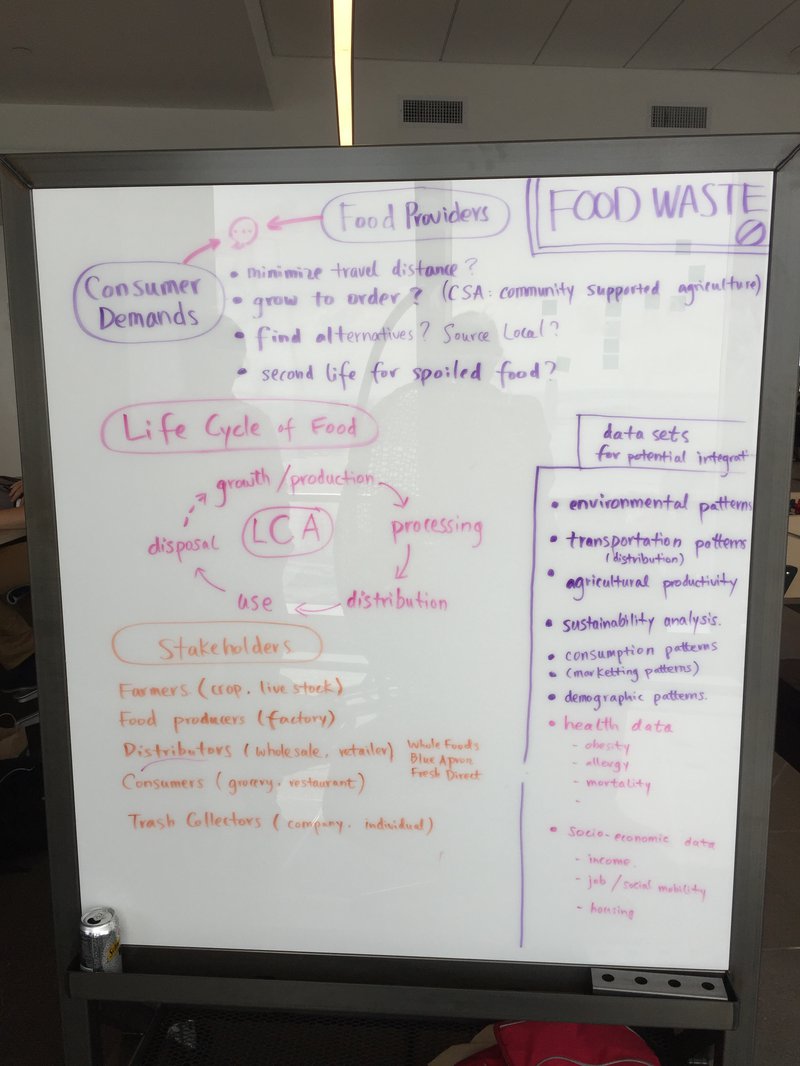 FOOD WASTE
Food Providers
Consumer
Demands
• minimize travel distance?
• grow to order? (CSA: community supported agriculture)
• find alternatives? Source Local?
• second life for spoiled food?
Life Cycle of Food
growth/production
processing
distribution
use
disposal
LCA
Stakeholders
Farmers (crop. live stock)
Food producers (factory)
Distributors (wholesale, retailer)
Whole Foods
Blue Apron
Fresh Direct
Consumers (grocery. restaurant)
Trash Collectors (company. individual)
data sets
for potential integrat
• environmental patterns
• transportation patterns
(distribution)
• agricultural productivity
• sustainability analysis.
• consumption patterns
• (marketting patterns)
• demographic patterns.
• health data
- obesity
- allergy
- mortality
-
• socio-economic data
- income.
- job/social mobility
- housing